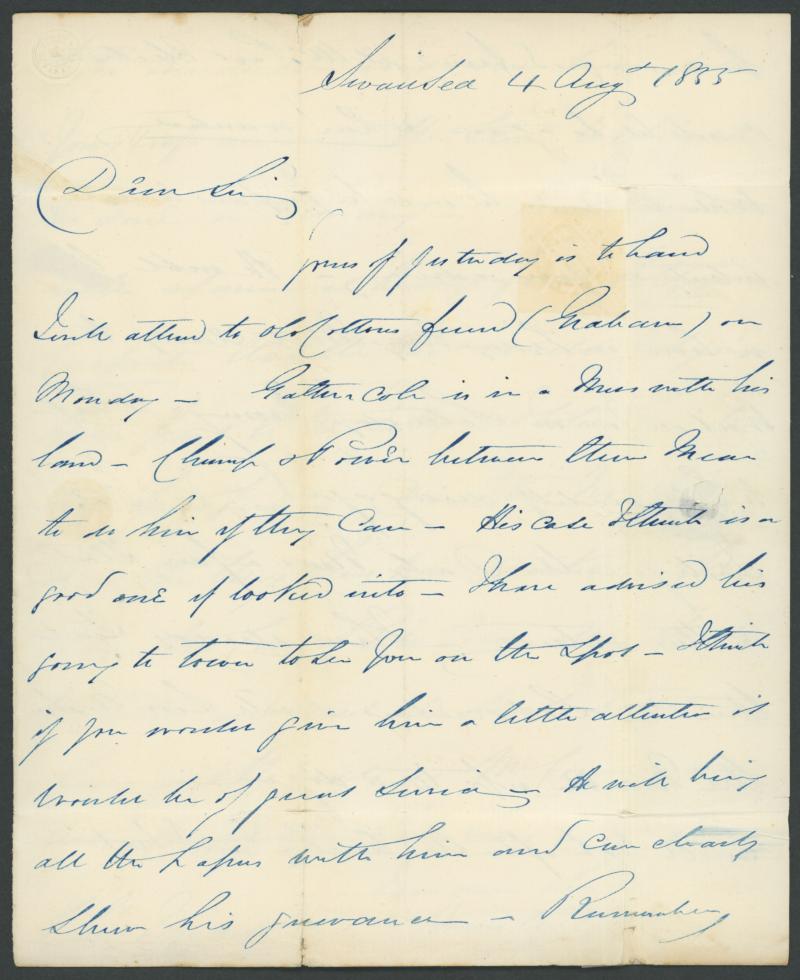 Swansea 4 Augt 1855
Dear Sir
yours of yesterday is to hand
I will attend to old Cottons friend (Graham) on
Monday — Gathercole is in a Mess with his
land — & Power between them Mean
to do him if they Can — His case I think is a
good one if looked into — I have advised his
going to town to see you on the spot — I think
if you would give him a little attention it
would be of great Service — He will bring
all the papers with him and can clearly
shew his grievance — Remember